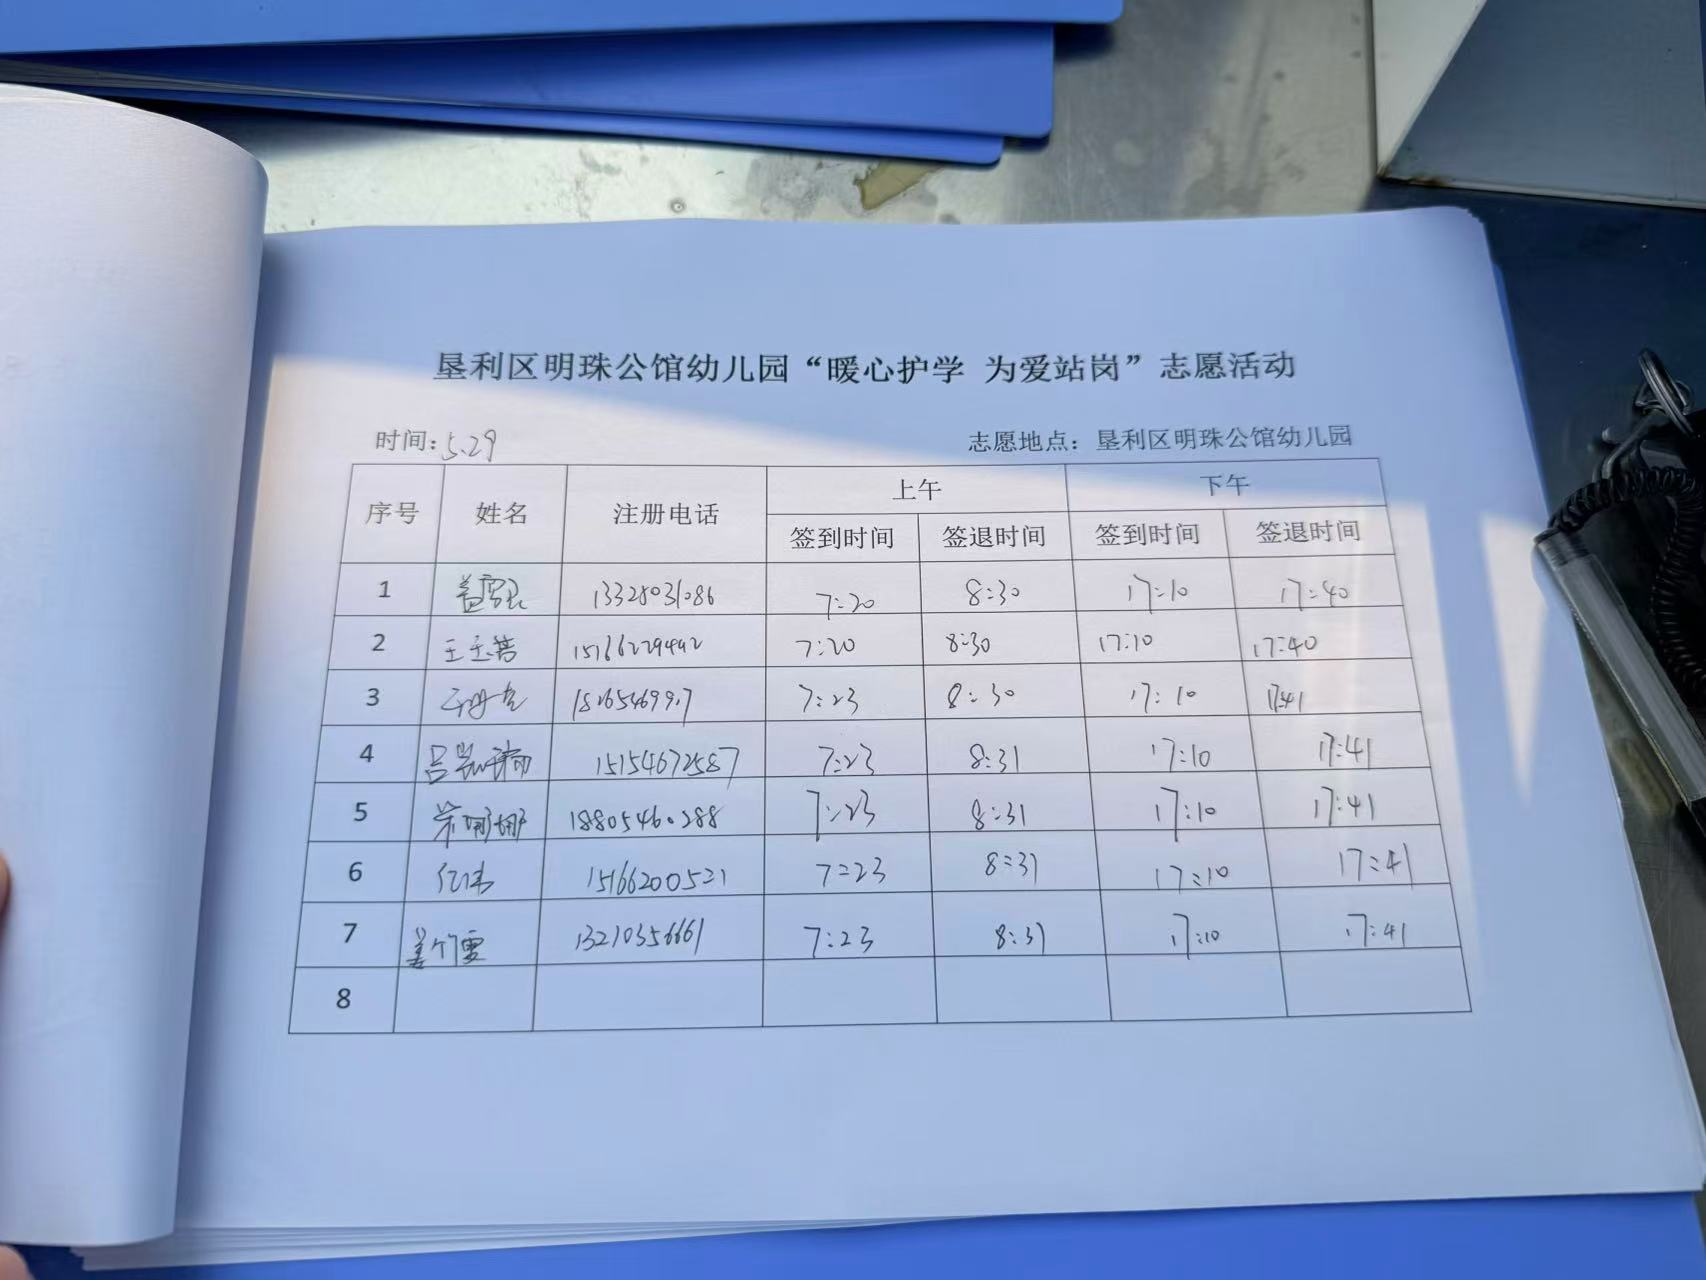 垦利区明珠公馆幼儿园“暖心护学 为爱站岗”志愿活动
时间:5.29 志愿地点：垦利区明珠公馆幼儿园
序号 姓名 注册电话 上午 下午
签到时间 签退时间 签到时间 签退时间
1 13328031086 7:20 8:30 17:10 17:40
2 15166229492 7:20 8:30 17:10 17:40
3 7:23 8:30 17:10 17:41
4 15154672587 7:23 8:31 17:10 17:41
5 荣娜娜 18805460288 7:23 8:31 17:10 17:41
6 15166200521 7:23 8:31 17:10 17:41
7 姜竹雪 13210356661 7:23 8:31 17:10 17:41
8